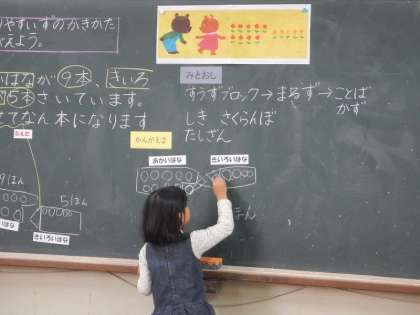 りやすいずのかきかた
がえよう。
いはなが9本、きいろ
が5本さいています。
せてなん本になります
みとおし
すうずブロック→まるず→ことば
かず
しき さくらんぼ
たしざん
かんがえる
あかいはな
きいろいはな
9ほん
5ほん
きいろいはな